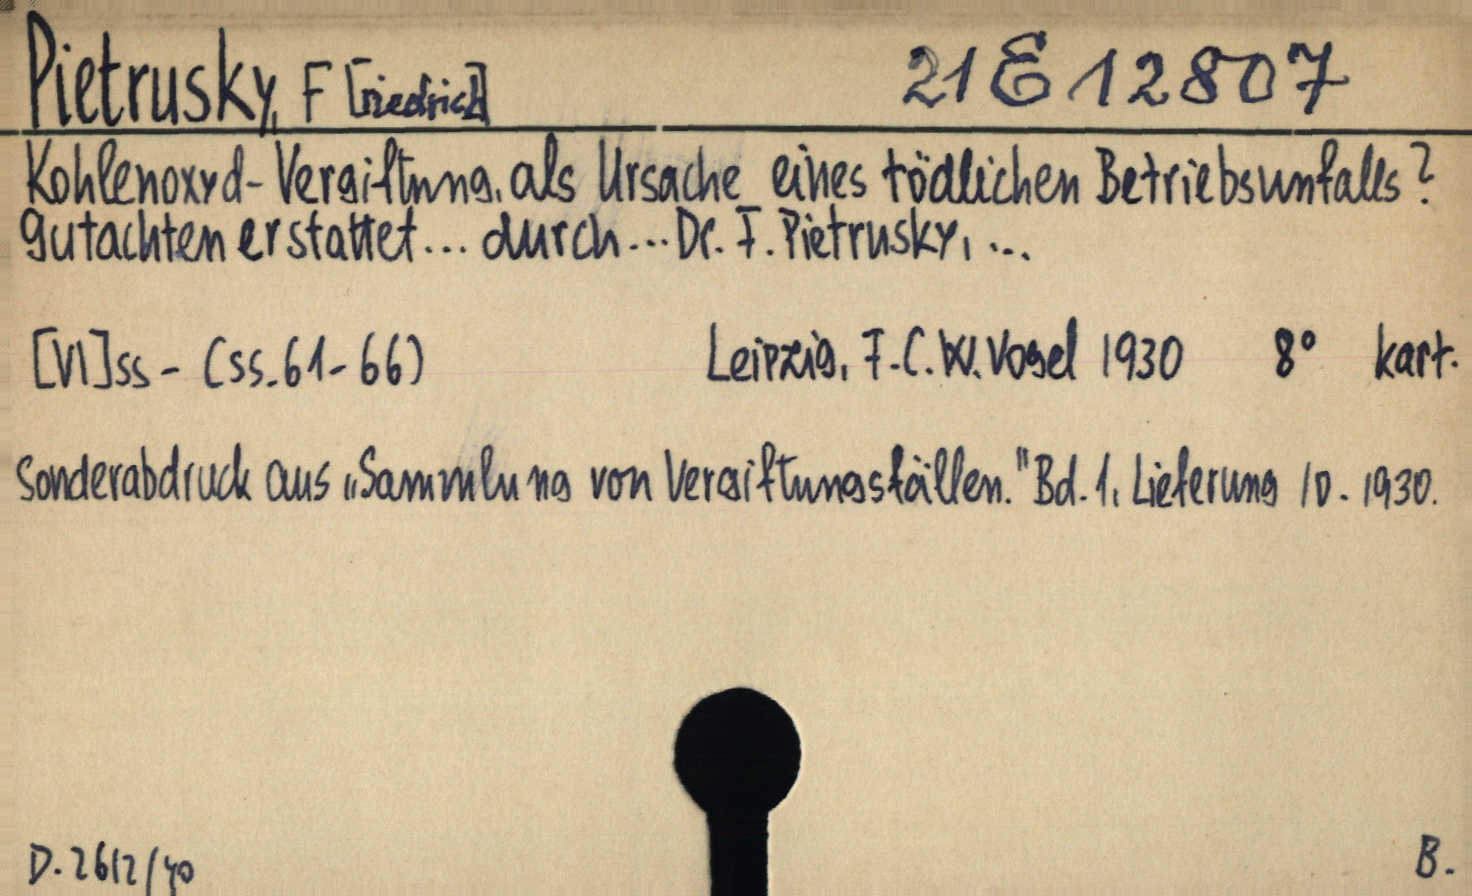 Pietrusky, F[riedrich] 21 E 12807
Kohlenoxyd-Vergiftung, als Ursache eines tödlichen Betriebsunfalls?
Gutachten erstattet... durch... Dr. F. Pietrusky, ...
[VI]ss - (ss. 61-66) Leipzig, F.C.W. Vogel 1930 8° kart.
Sonderabdruck aus „Sammlung von Vergiftungsfällen." Bd. 1, Lieferung 10. 1930.
D. 2612/40 B.